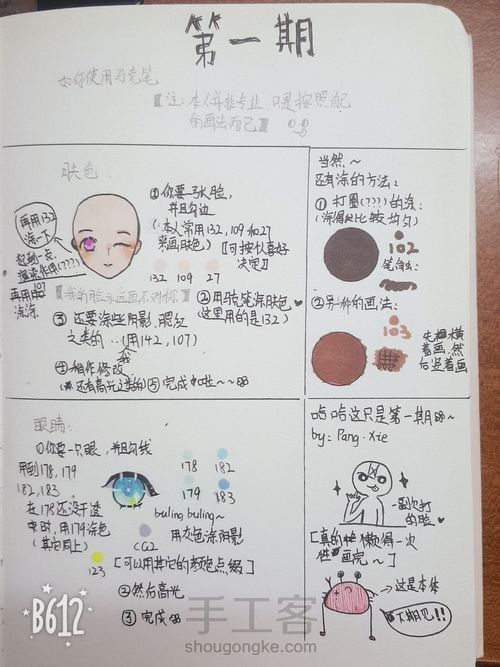 第一期
如何使用马克笔
【注:本人并非专业,只是按照自己
的画法而已】
肤色
①你要一张脸,
并且勾边
(本人常用132,109和27
来画肤色)【可按你喜好
决定】
132 109 27
再用132
涂一下
起到一点
渲染作用(???)
再用102
涂涂
【我的脸永远画不对称】
②用马克笔涂肤色
(这里用的是132)
③还要涂些阴影,眼红
之类的…(用142,107)
④稍作修改
(还有高光之类的)
⑤完成啦~~
当然~
还有涂的方法:
①打圈(???)的涂:
(涂得比较均匀)
102
②另一种的画法:
103
先横
着画,然
后竖着画
眼睛:
①你要一只眼,并且勾线
用到178,179
182,183
在178还没干透
时,用179涂色
(其它同上)
178 182
179 183
buling buling~
CG2
用灰色涂阴影
123
【可以用其它的颜色点缀】
②然后高光
③完成
哈哈这只是第一期~
by: Pang.Xie
一副欠打
的脸
【真的懒得一次
性画完~】
这是本体
下期见!!
B612
手工客
shougongke.com